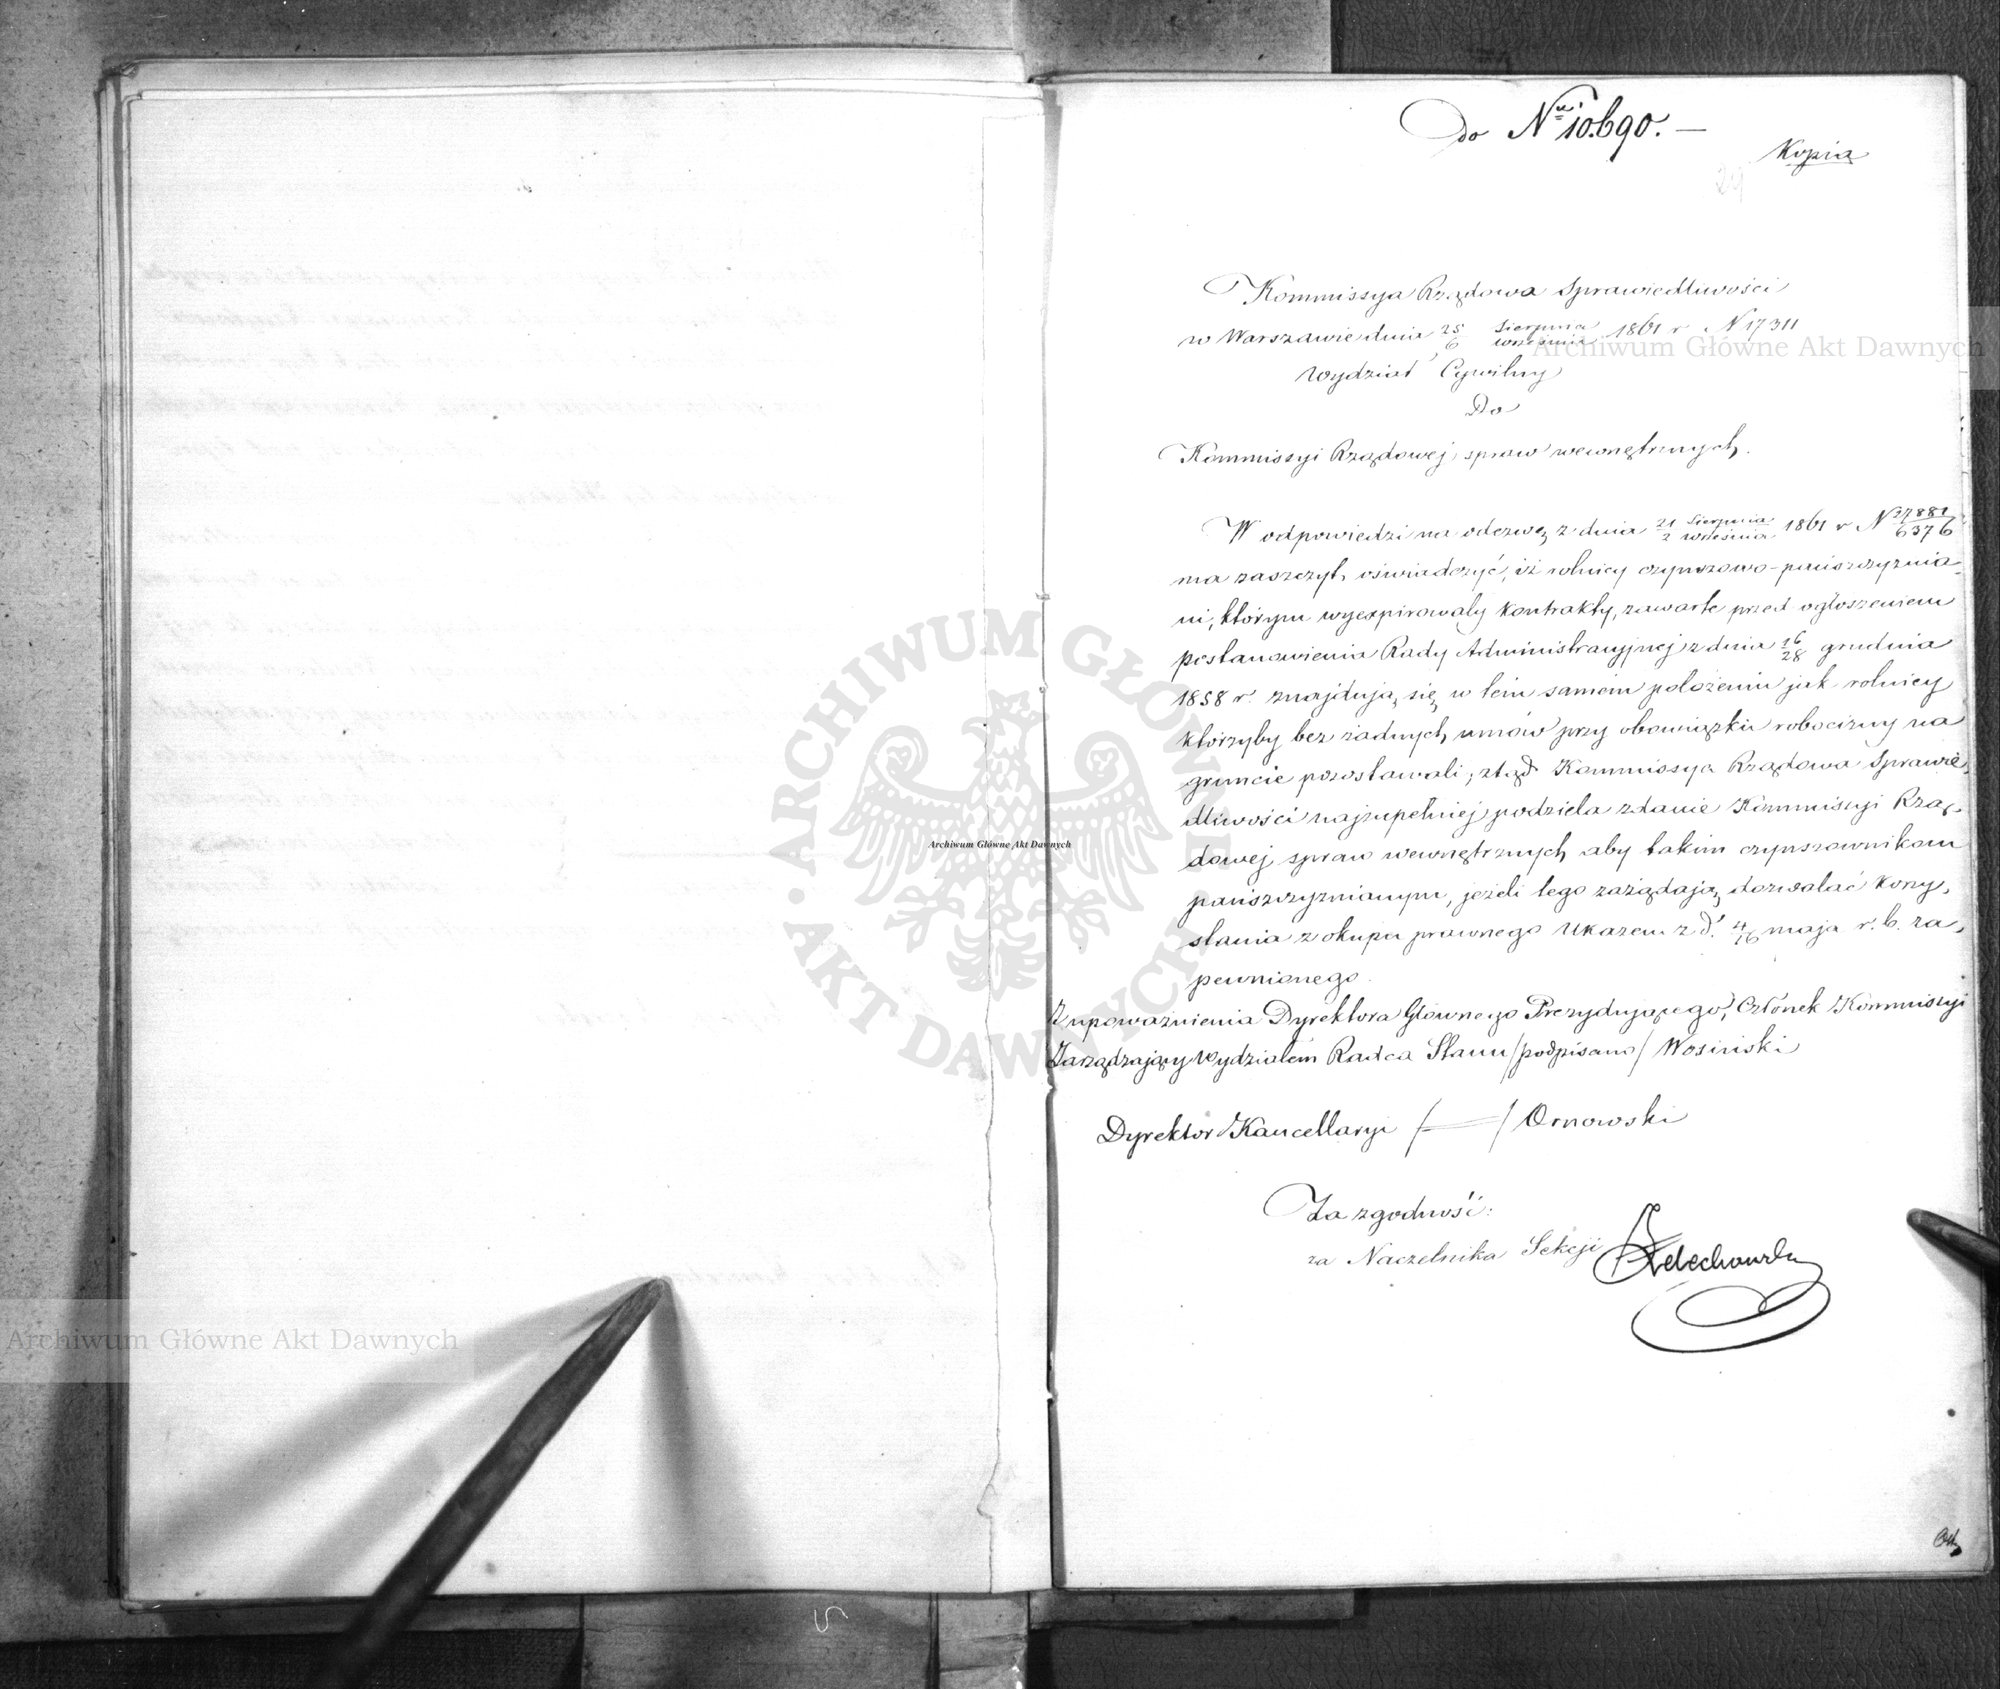 do Nru 10.690. —
Kopia
29
Kommissya Rządowa Sprawiedliwości
w Warszawie dnia 25/6 Sierpnia/września 1861 r N 17311
Wydział Cywilny
Do
Kommissyi Rządowej spraw wewnętrznych.
W odpowiedzi na odezwę z dnia 21/2 Sierpnia/września 1861 r N 27881/6376
ma zaszczyt oświadczyć, iż rolnicy czynszowo-pańszczyznia-
ni, którym wyexpirowały kontrakty, zawarte przed ogłoszeniem
postanowienia Rady Administracyjnej z dnia 16/28 grudnia
1858 r. znajdują się w tem samem położeniu jak rolnicy
którzyby bez żadnych umów przy obowiązku robocizny na
gruncie pozostawali; ztąd Kommissya Rządowa Sprawie-
dliwości najzupełniej podziela zdanie Kommissyi Rzą-
dowej spraw wewnętrznych aby takim czynszownikom
pańszczyznianym, jeżeli tego zażądają, dozwalać korzy-
stania z okupu prawnego Ukazem z d. 4/16 maja r. b. za-
pewnionego.
Z upoważnienia Dyrektora Głównego Prezydującego, Członek Kommissyi
Zarządzający Wydziałem Radca Stanu /podpisano/ Wosiński
Dyrektor Kancellaryi /=/ Ornowski
Za zgodność:
za Naczelnika Sekcji Żelechowski
Archiwum Główne Akt Dawnych
Archiwum Główne Akt Dawnych
Archiwum Główne Akt Dawnych
ARCHIWUM GŁÓWNE · AKT DAWNYCH ·